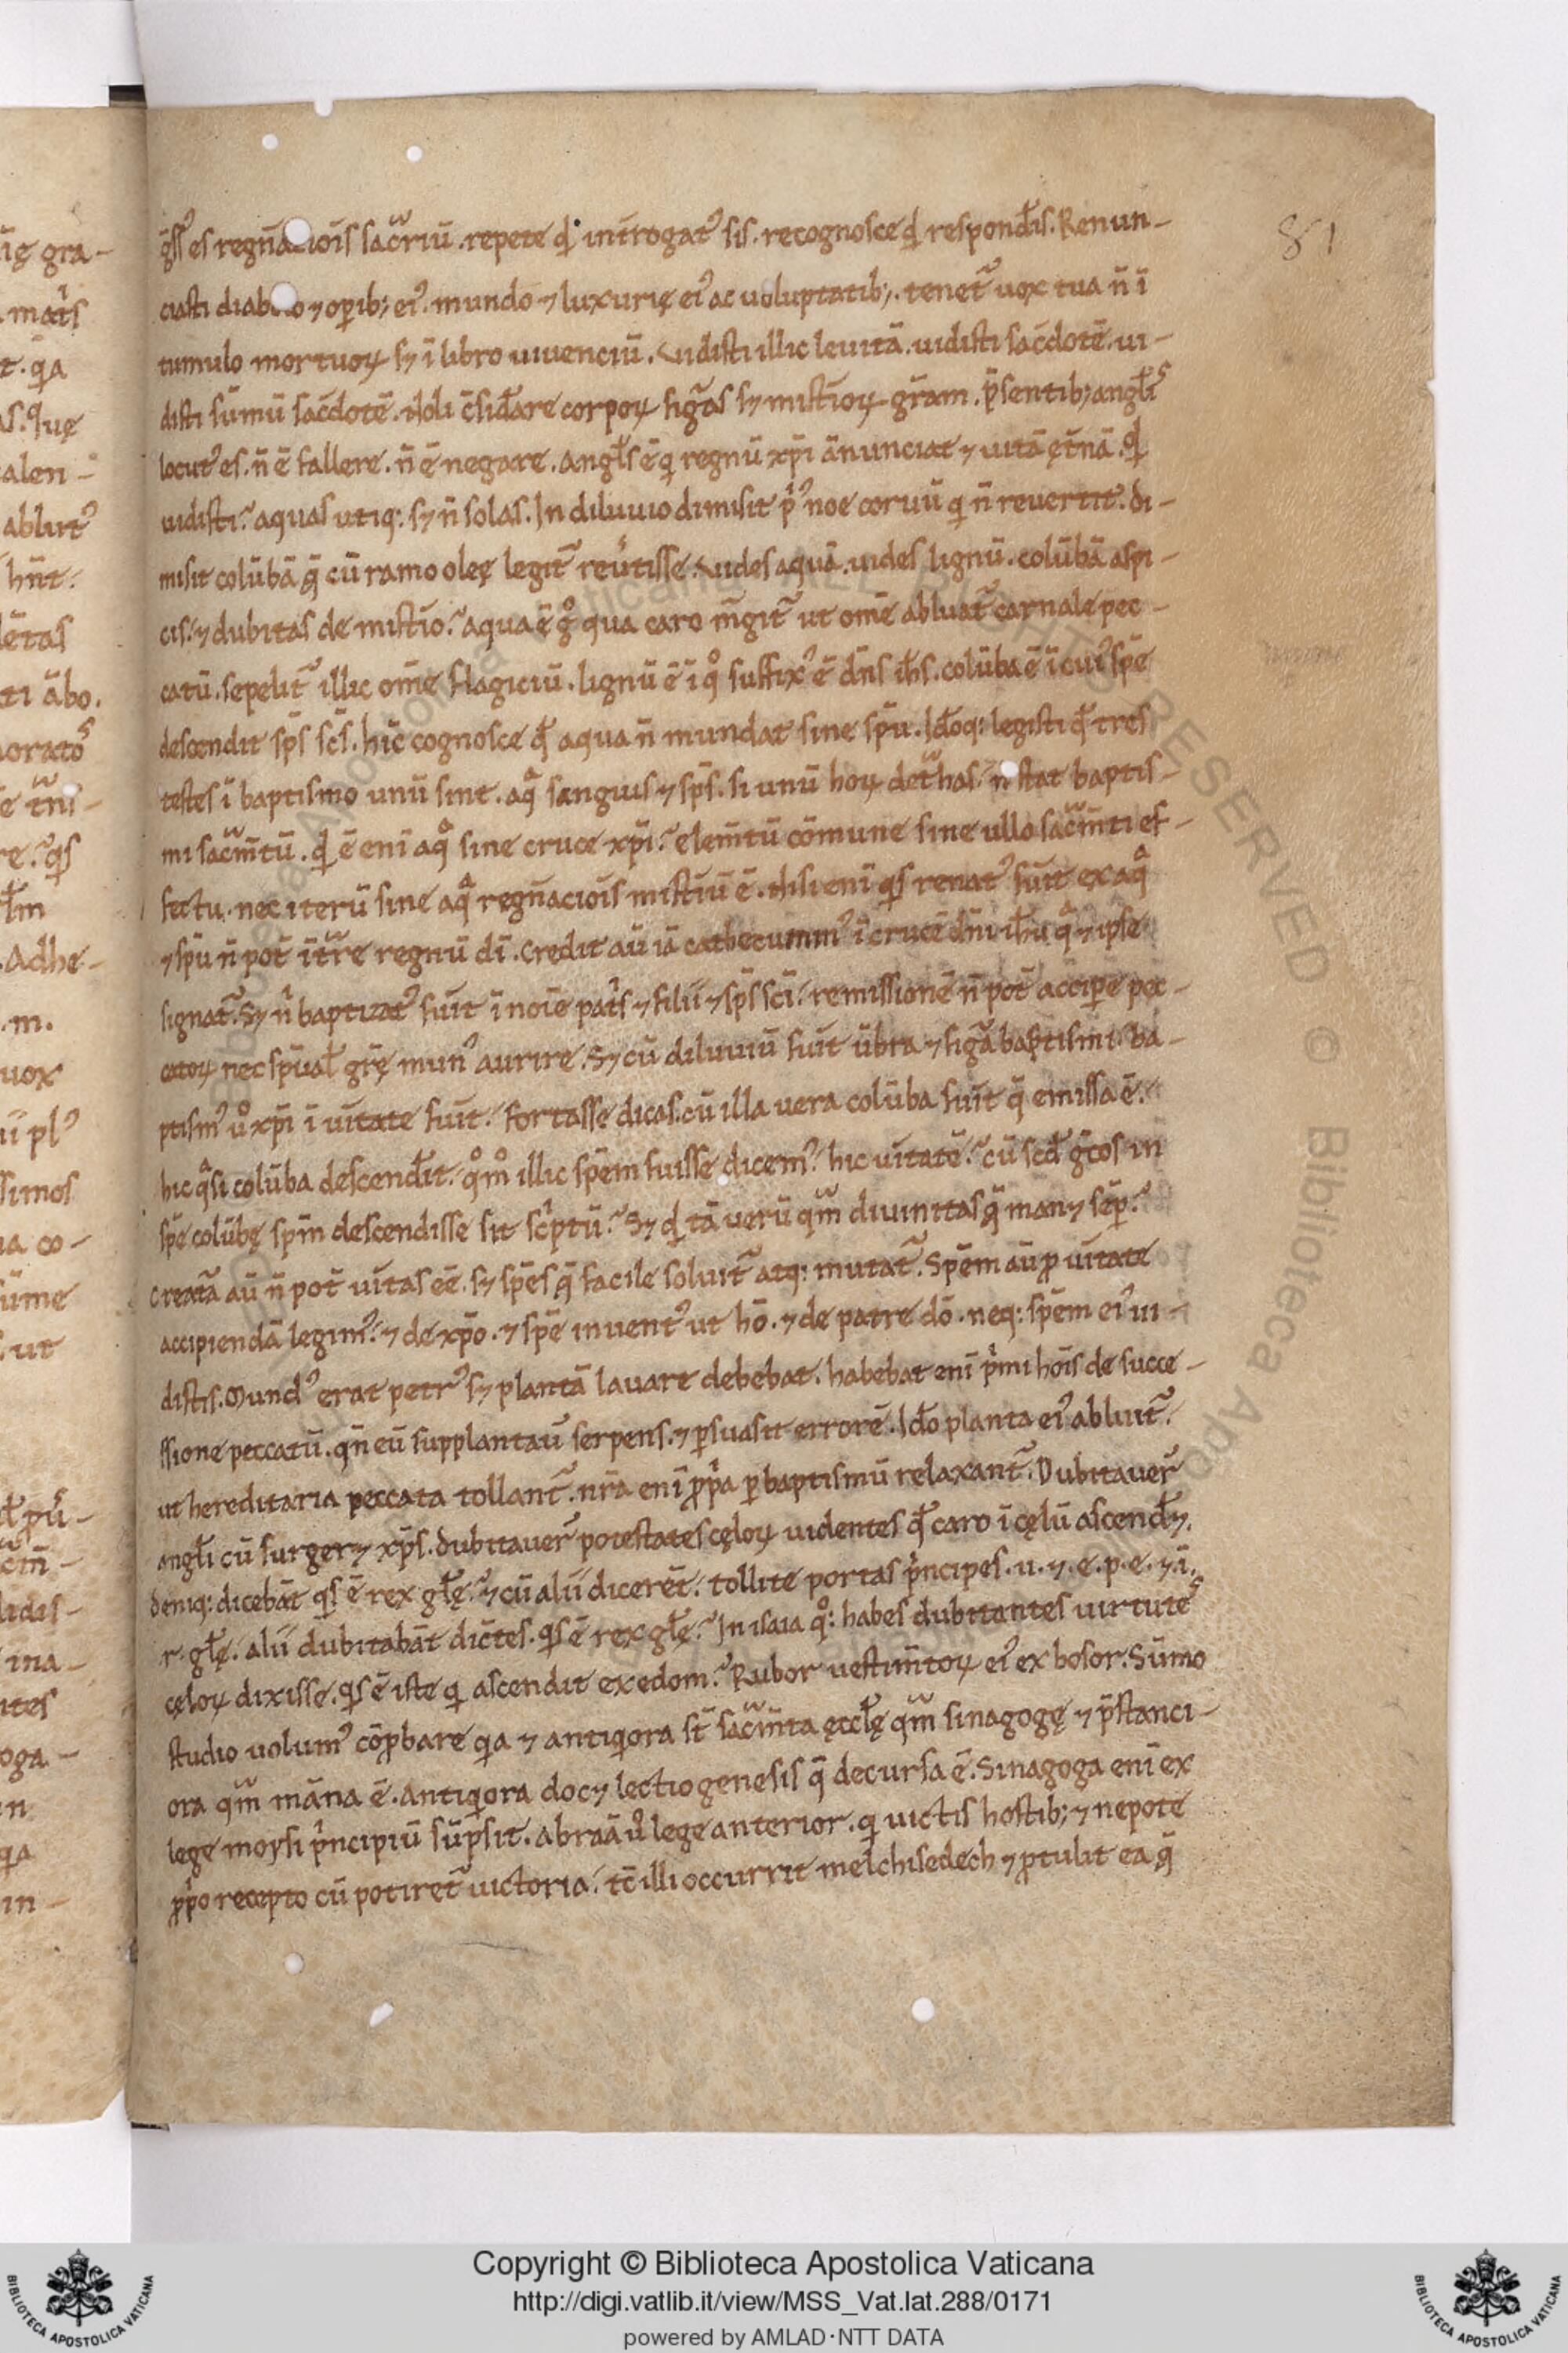 g̃ſſ᾽ es regñaciõis sac̃riũ . repete qđ int̃rogat᾽ sis . recognosce qđ respondisti . Renun-
ciasti diabolo ⁊ oꝑib; ei᾽ . mundo ⁊ luxurię ei᾽ ac uoluptatib; . tenet᷑ uox tua ñ ĩ
tumulo mortuoꝝ sꝫ ĩ libro uiuenciũ . Vidisti illic leuitã . uidisti sac̃dotẽ . ui-
disti sũmũ sac̃dotẽ . Noli c̃siđare corpoꝝ figãs sꝫ mist̃ioꝝ gr̃am . p̃sentib; angłis
locut᾽ es . ñ ẽ fallere . ñ ẽ negare . Angłs ẽ qi regnũ xp̃i ãnunciat ⁊ uitã ęt̃nã . qđ
uidisti? aquas utiq: sꝫ ñ solas . In diluuio dimisit p̃᾽ noe coruũ qi ñ reuertit . di-
misit colũbã q̃ cũ ramo olęę legit᷑ reũtisse . Vides aquã . uides lignũ . colũbã aspi-
cis . ⁊ dubitas de mist̃io? aqua ẽ g° qua caro m̃git᷑ ut om̃e abluat᷑ carnale pec-
catũ . sepelit᷑ illic om̃e flagiciũ . lignũ ẽ ĩ q° suffix᾽ ẽ dñs ih̃s . colũba ẽ ĩ cui᾽ spẽ
descendit sp̃s sc̃s . hic̃ cognosce qđ aqua ñ mundat sine sp̃u . Iđoq: legisti qđ tres
testes ĩ baptismo unũ sint . aqᵃ sanguis ⁊ sp̃s . si unũ hoꝝ det̃has . ñ stat baptis-
mi sac̃m̃tũ . qđ ẽ enĩ aqᵃ sine cruce xp̃i? elem̃tũ cõmune sine ullo sac̃m̃ti ef-
fectu . nec iterũ sine aqᵃ regñaciõis mist̃iũ ẽ . Nisi enĩ qis renat᾽ fũit ex aqᵃ
⁊ sp̃u ñ pot̃ ĩt̃re regnũ dĩ . Credit aũ iã cathecumin᾽ ĩ crucẽ dñi ih̃u qᵃ ⁊ ipse
signat᷑ . Sꝫ nⁱ baptizat᾽ fũit ĩ noĩe pat̃s ⁊ filii ⁊ sp̃s sc̃i . remissionẽ ñ pot̃ accipẽ pec-
catoꝝ nec sp̃uał gr̃ę mun᾽ aurire . Sꝫ cũ diluuiũ fũit ũbra ⁊ figã baptismi . ba-
ptism᾽ u° xp̃i ĩ uĩtate fũit . fortasse dicas . cũ illa uera colũba fũit q̃ emissa ẽ .
hic qᵃsi colũba descendit . q°m° illic spẽm fuisse dicem᾽ . hic uĩtatẽ? cũ scđ g̃cos in
spẽ colũbę sp̃m descendisse sit sc̃ptũ? Sꝫ qđ tã uerũ qm̃ diuinitas q̃ manꝫ sẽp?
Creatã aũ ñ pot̃ uĩtas eẽ . sꝫ spẽs q̃ facile soluit᷑ atq: mutat᷑ . Spẽm aũ ꝓ uĩtate
accipiendã legim᾽ . ⁊ de xp̃o . ⁊ spẽ inuent᾽ ut hõ . ⁊ de patre dõ . neq: spẽm ei᾽ ui-
distis . Mund᾽ erat petr᾽ sꝫ plantã lauare debebat . habebat enĩ pⁱmi hõis de succe-
ssione peccatũ . qñ eũ supplantaũ serpens . ⁊ ꝑsuasit errorẽ . Iđo planta ei᾽ abluit᷑ .
ut hereditaria peccata tollant᷑ . nr̃a enĩ ꝓpⁱa ꝑ baptismũ relaxant᷑ . Dubitauer̃
angłi cũ surgerꝫ xp̃s . dubitauer̃ potestates cęloꝝ uidentes qđ caro ĩ cęlũ ascenđꝫ .
deniq: dicebãt qis ẽ rex głę? ⁊ cũ alii dicerẽt . tollite portas pⁱncipes . u . ⁊ . e . p . e . ⁊ ĩ .
r . głę . alii dubitabãt dic̃tes . qis ẽ rex głę? In isaia q°: habes dubitantes uirtutes
cęloꝝ dixisse . qis ẽ iste qi ascendit ex edom? Rubor uestim̃toꝝ ei᾽ ex bosor . Sũmo
studio uolum᾽ cõꝓbare qia ⁊ antiqiora st̃ sac̃m̃ta ęccłę qm̃ sinagogę ⁊ p̃stanci-
ora qm̃ mãna ẽ . Antiqiora docꝫ lectio genesis q̃ decursa ẽ . Sinagoga enĩ ex
lege moysi pⁱncipiũ sũpsit . Abraã u° lege anterior . qi uictis hostib; ⁊ nepote
ꝓpⁱo recepto cũ potiret᷑ uictoria . tc̃ illi occurrit melchisedech ⁊ ꝓtulit ea q̃
81
Copyright © Biblioteca Apostolica Vaticana
http://digi.vatlib.it/view/MSS_Vat.lat.288/0171
powered by AMLAD·NTT DATA
BIBLIOTECA APOSTOLICA VATICANA
BIBLIOTECA APOSTOLICA VATICANA